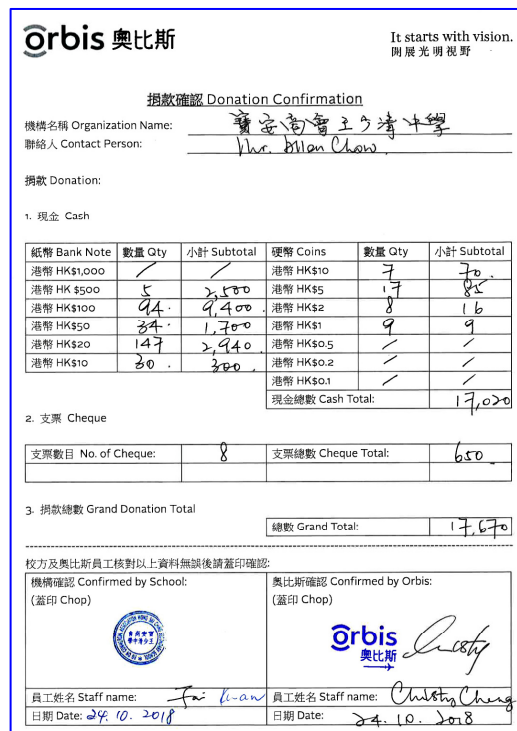 orbis 奧比斯
It starts with vision.
開展光明視野
捐款確認 Donation Confirmation
機構名稱 Organization Name: 寶安商會王少清中學
聯絡人 Contact Person: Mr. Allen Chow
捐款 Donation:
1. 現金 Cash
紙幣 Bank Note 數量 Qty 小計 Subtotal 硬幣 Coins 數量 Qty 小計 Subtotal
港幣 HK$1,000 / / 港幣 HK$10 7 70.
港幣 HK $500 5 2,500 港幣 HK$5 17 85
港幣 HK$100 94. 9,400. 港幣 HK$2 8 16
港幣 HK$50 34. 1,700 港幣 HK$1 9 9
港幣 HK$20 147 2,940 港幣 HK$0.5 / /
港幣 HK$10 30. 300. 港幣 HK$0.2 / /
港幣 HK$0.1 / /
現金總數 Cash Total: 17,020
2. 支票 Cheque
支票數目 No. of Cheque: 8 支票總數 Cheque Total: 650
3. 捐款總數 Grand Donation Total
總數 Grand Total: 17,670
校方及奧比斯員工核對以上資料無誤後請蓋印確認:
機構確認 Confirmed by School: 奧比斯確認 Confirmed by Orbis:
(蓋印 Chop) (蓋印 Chop)
orbis
奧比斯
Christy
員工姓名 Staff name: Fai Kwan 員工姓名 Staff name: Christy Cheng
日期 Date: 24.10.2018 日期 Date: 24.10.2018